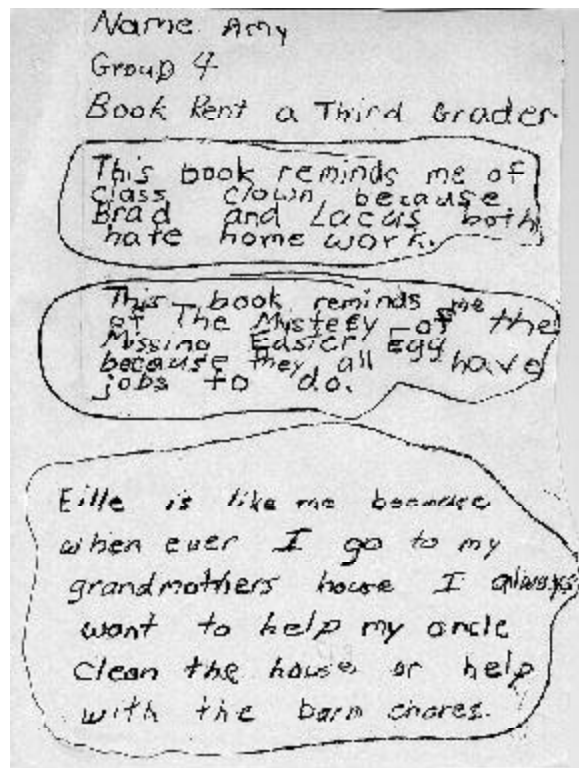 Name Amy
Group 4
Book Rent a Third Grader
This book reminds me of
Class clown because
Brad and Lacus both
hate home work.
This book reminds me
of The Mysteey of the
Missing Easter Egg
because they all have
jobs to do.
Eille is like me because
when ever I go to my
grandmothers house I always
want to help my oncle
clean the house or help
with the barn chores.